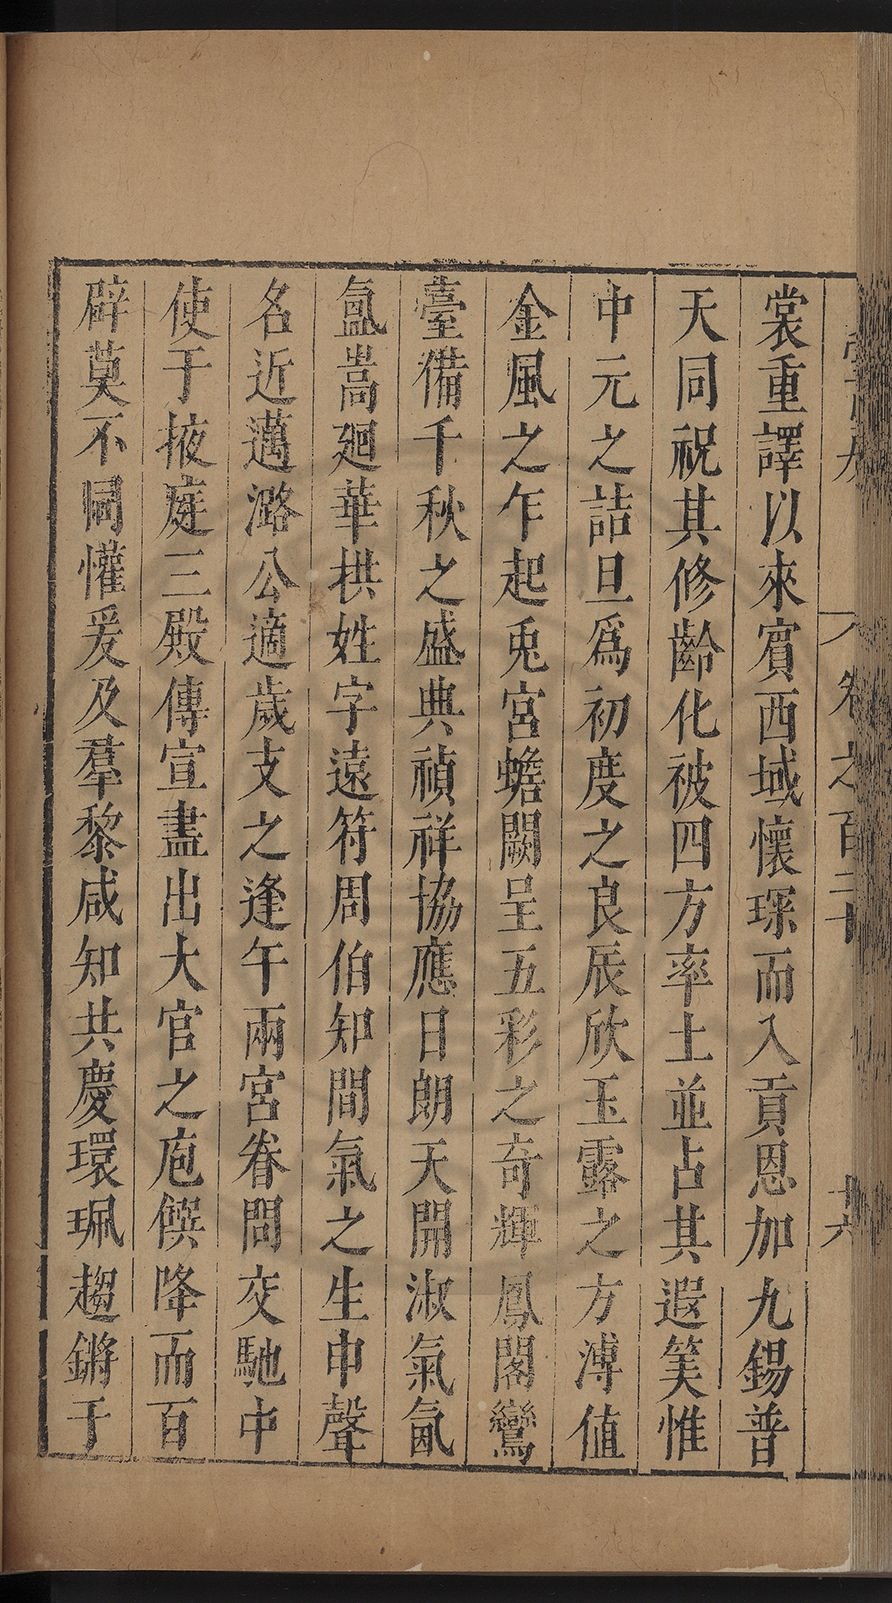 裳重譯以來賔西域懷琛而入貢恩加九錫普
天同祝其修齡化被四方率土並占其遐筭惟
中元之詰旦爲初度之良辰欣玉露之方溥值
金風之乍起兎宮蟾闕呈五彩之奇輝鳳閣鸞
臺備千秋之盛典禎祥協應日朗天開淑氣氤
氳嵩廻華拱姓字遠符周伯知間氣之生申聲
名近邁潞公適歲支之逢午兩宮眷問交馳中
使于掖庭三殿傳宣盡出大官之庖饌降而百
辟莫不同懽爰及羣黎咸知共慶環珮趨鏘于
卷之百二十